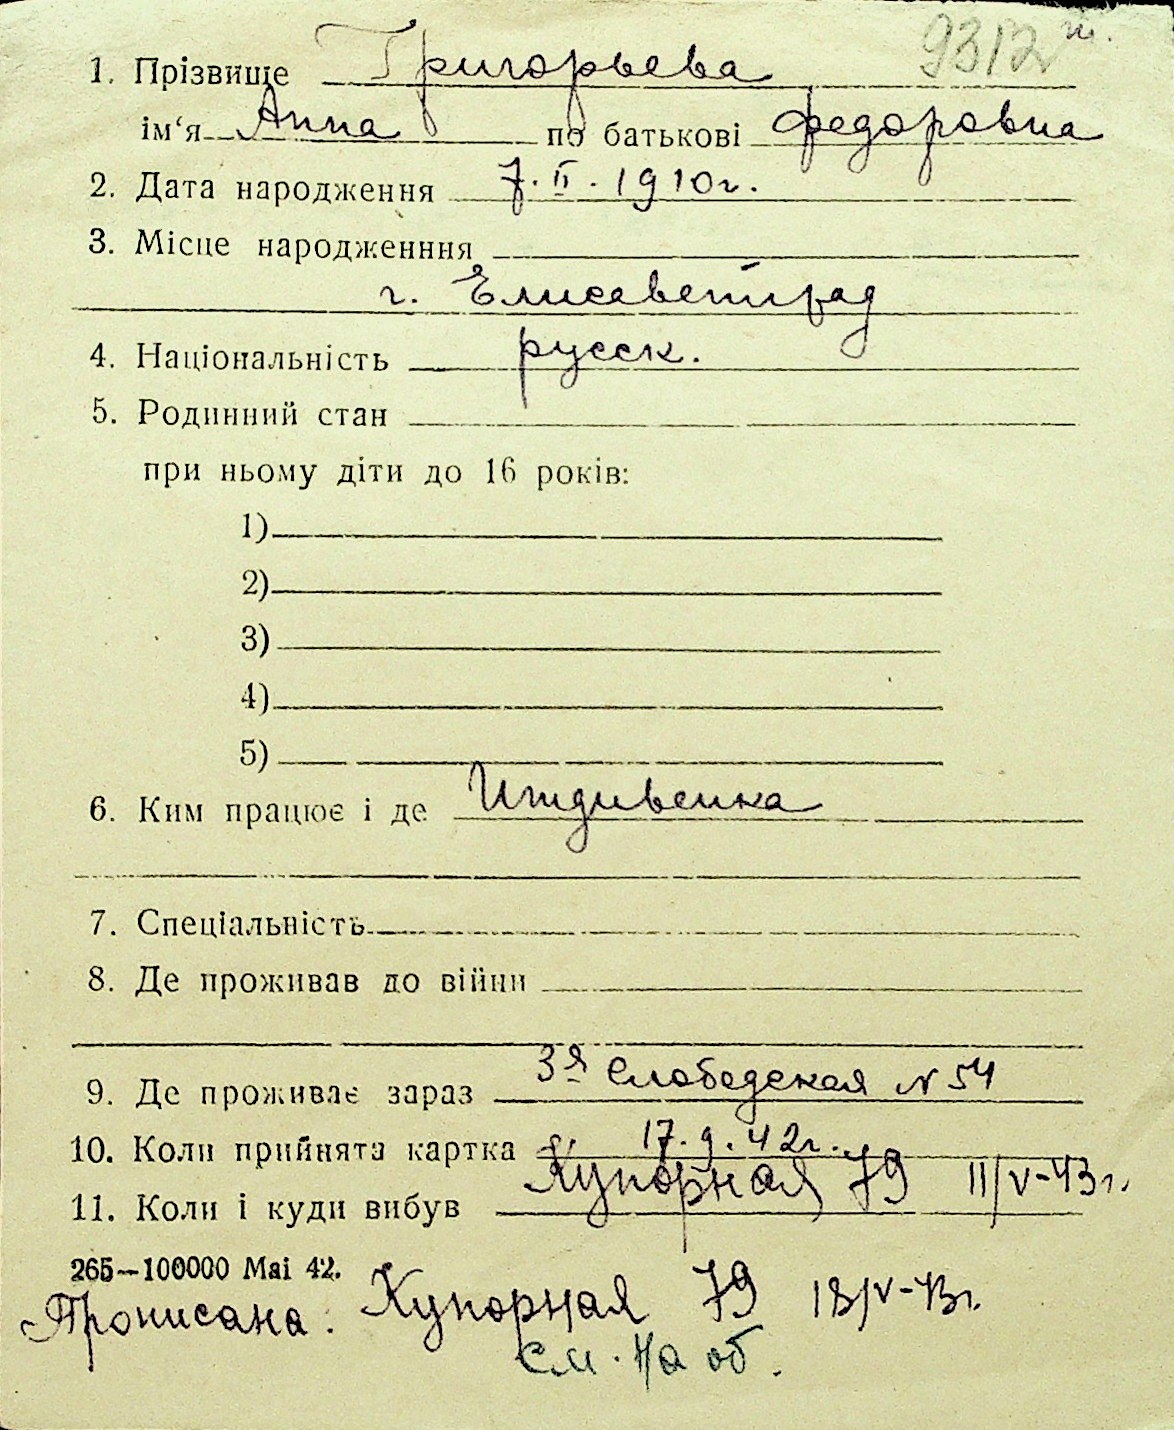 9312 ш.
1. Прізвище Григорьева
ім‘я Анна по батькові Федоровна
2. Дата народження 7. II. 1910г.
3. Місце народженння
г. Елисаветград
4. Національність русск.
5. Родинний стан
при ньому діти до 16 років:
1)
2)
3)
4)
5)
6. Ким працює і де Иждивенка
7. Спеціальність
8. Де проживав до війни
9. Де проживає зараз 3я Слободская N 54
10. Коли прийнята картка 17. 9. 42г.
11. Коли і куди вибув Купорная 79 11/V-43г.
265—100000 Mai 42.
Прописана: Купорная 79 13/V-43г.
см. на об.